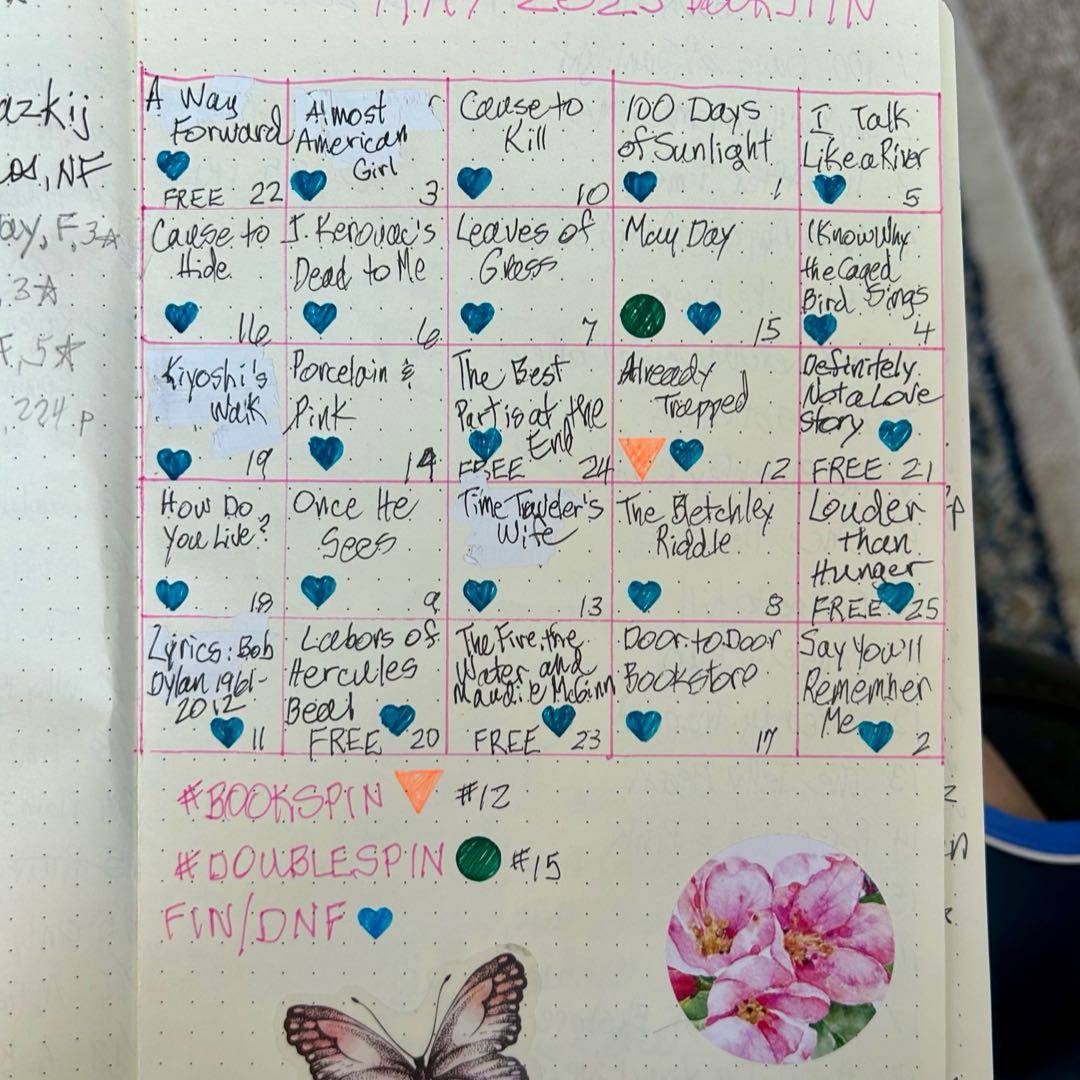 MAY 2025 BOOKSPIN
azkij
, NF
ay, F, 3☆
, 3☆
F, 5☆
, 224 p
A Way
Forward
FREE 22
Almost
American
Girl
3
Cause to
Kill
10
100 Days
of Sunlight
1
I Talk
Like a River
5
Cause to
Hide
16
J. Kerouac's
Dead to Me
6
Leaves of
Grass
7
May Day
15
I Know Why
the Caged
Bird Sings
4
Kiyoshi's
Walk
19
Porcelain &
Pink
14
The Best
Part is at the
End
FREE 24
Already
Trapped
12
Definitely
Not a Love
Story
FREE 21
How Do
You Live?
18
Once He
Sees
9
Time Traveler's
Wife
13
The Bletchley
Riddle
8
Louder
than
Hunger
FREE 25
Lyrics: Bob
Dylan 1961-
2012
11
Labors of
Hercules
Beal
FREE 20
The Fire, the
Water, and
Maudie McGinn
FREE 23
Door-to-Door
Bookstore
17
Say You'll
Remember
Me
2
#BOOKSPIN #12
#DOUBLESPIN #15
FIN/DNF